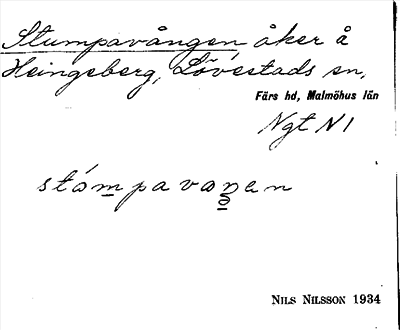 Stumpavången åker å
Heingeberg, Lövestads sn,
Färs hd, Malmöhus län
Ngt N 1
stómpavaŋen
NILS NILSSON 1934